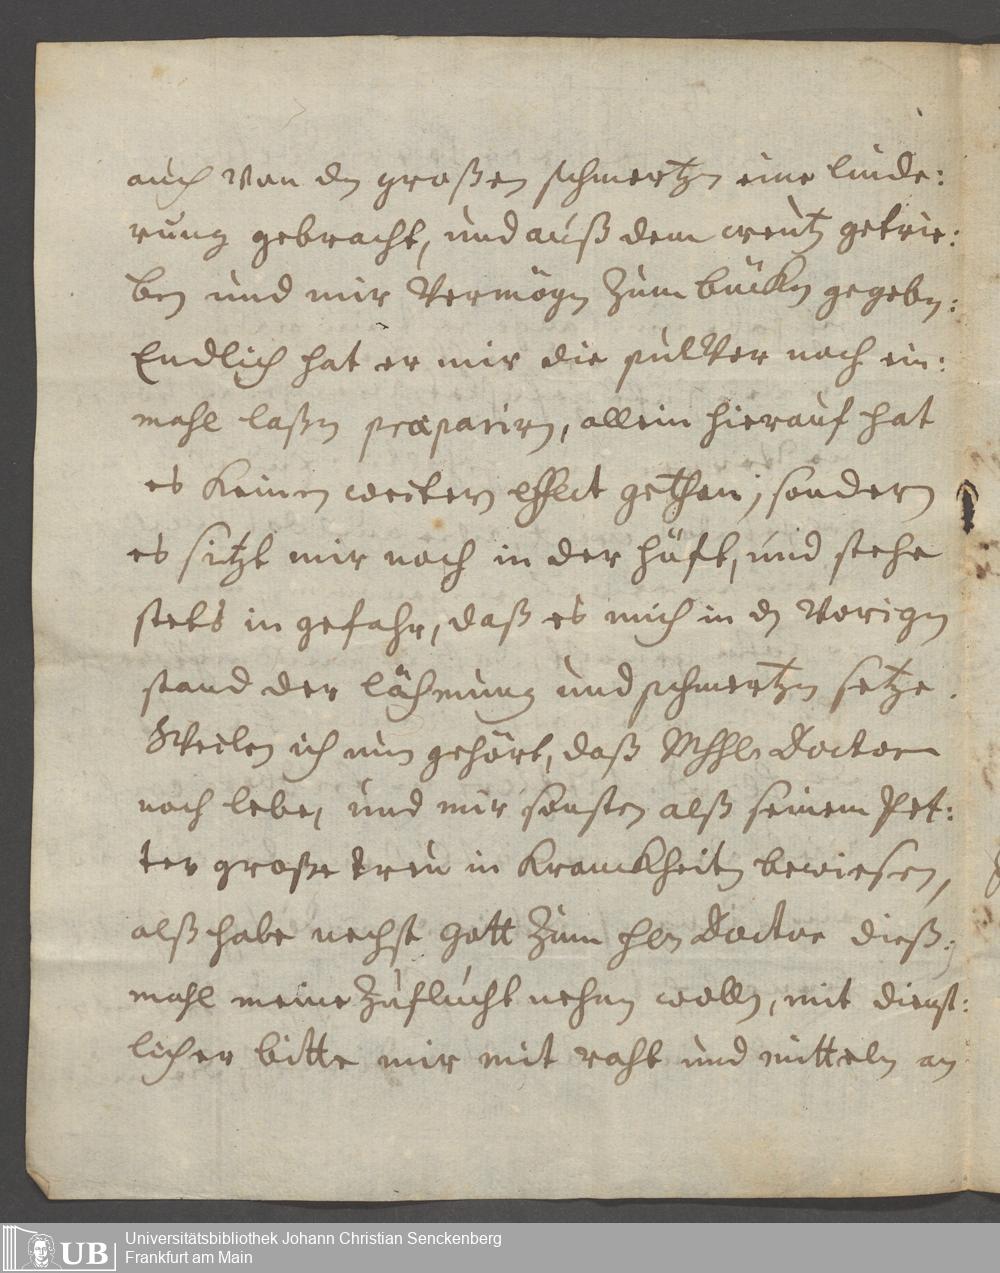 auch von dn großen schmertzn eine linde:
rung gebracht, und auß dem creutz getrie:
ben und mir Vermögn Zum bückn gegebn:
Endlich hat er mir die pulVer noch ein:
mahl laßn præparirn, allein hierauf hat
es Keinen weitern effect gethan; sondern
es sitzt mir noch in der hüft, und stehe
stets in gefahr, daß es mich in dn Vorign
stand der lähmung und schmertzn setze.
Weilen ich nun gehört, daß Doctor
noch lebe, und mir sonsten alß seinem Pet:
ter große treu in Kranckheitn bewiesen,
alß habe nechst Gott Zum Doctor dieß:
mahl meine Zuflucht nehmn wolln, mit dienst:
licher bitte mir mit raht und mitteln an
UB
Universitätsbibliothek Johann Christian Senckenberg
Frankfurt am Main